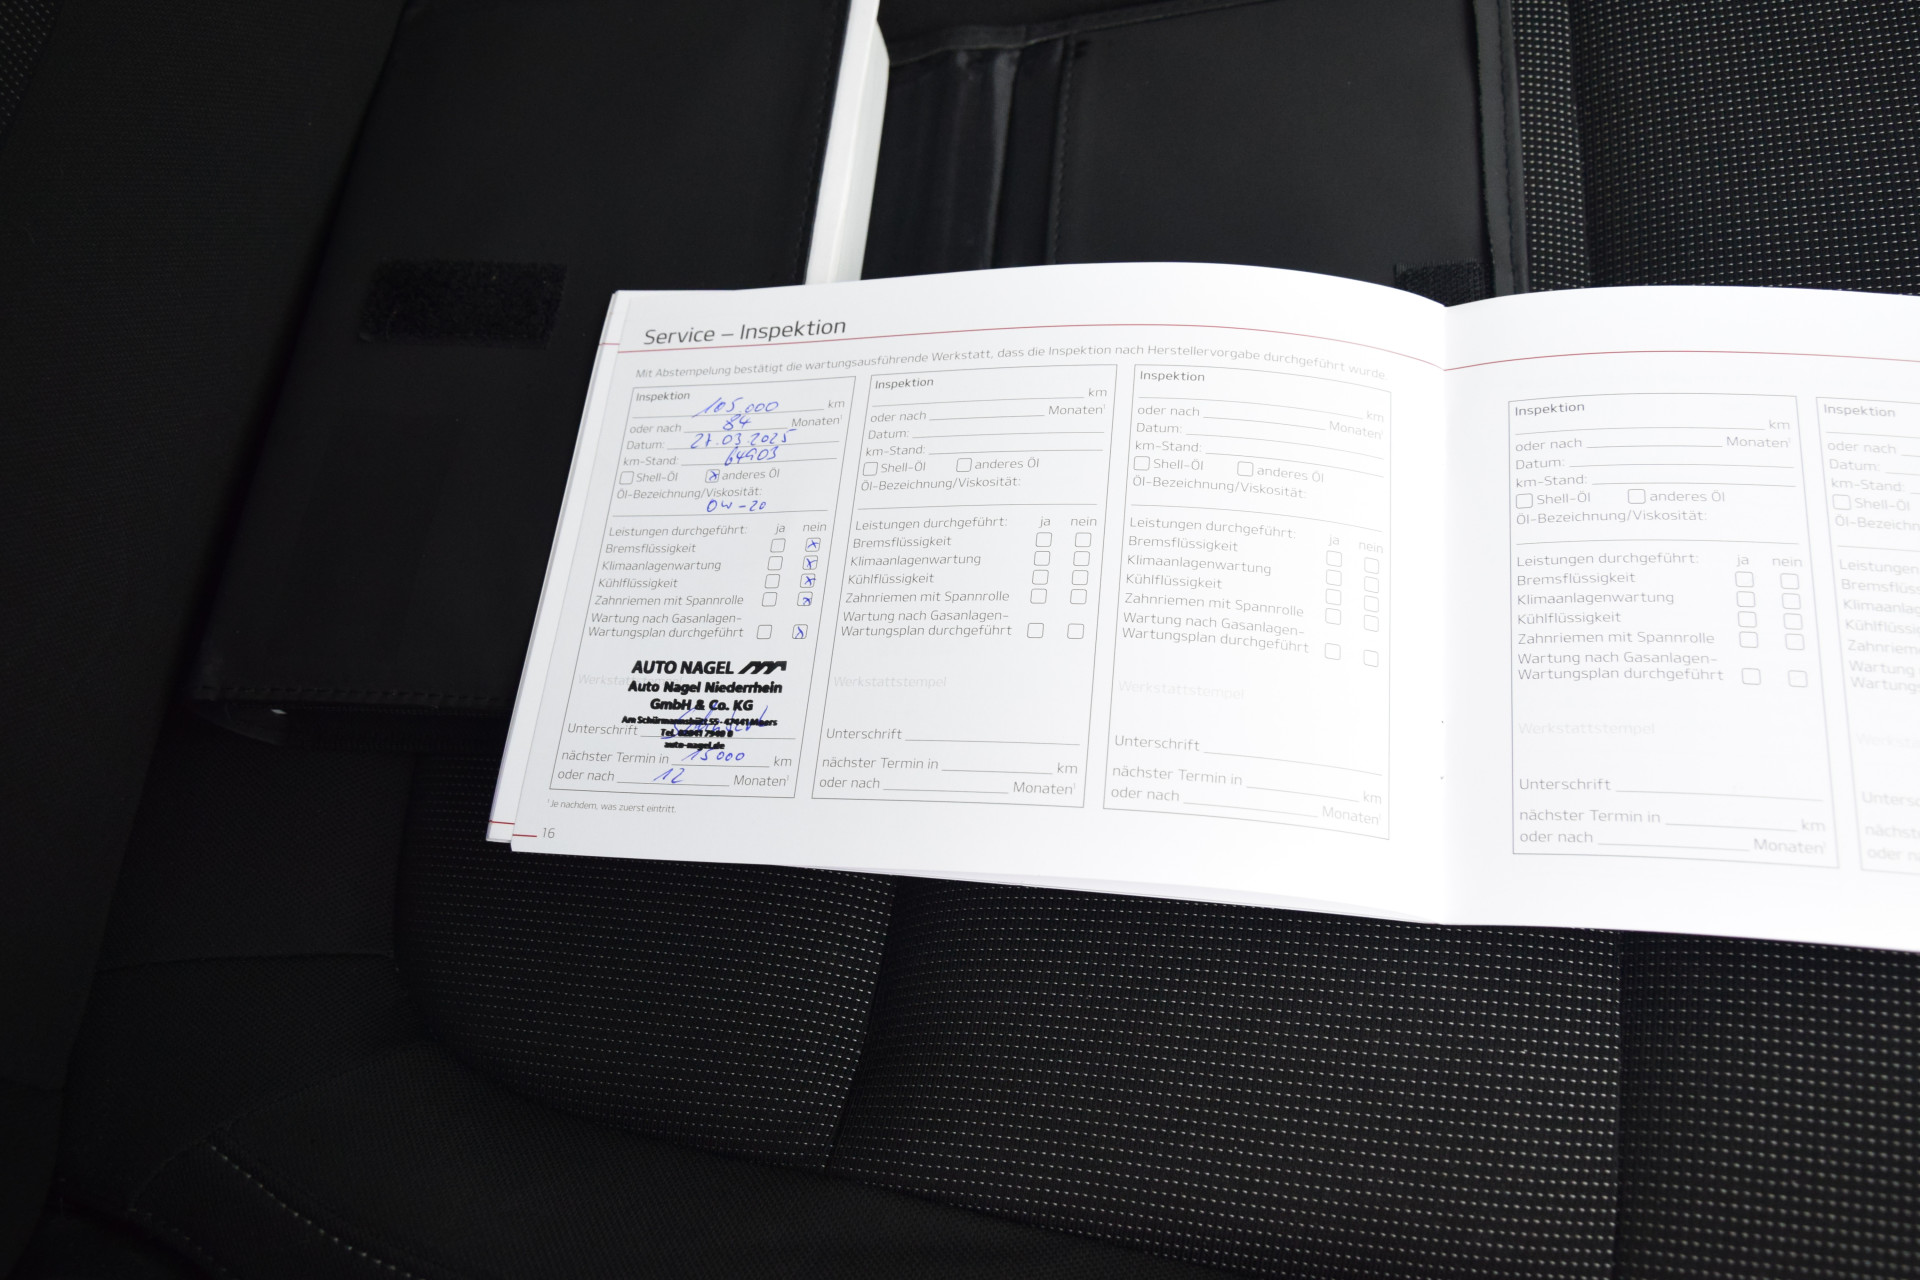 Service – Inspektion
Mit Abstempelung bestätigt die wartungsausführende Werkstatt, dass die Inspektion nach Herstellervorgabe durchgeführt wurde
Inspektion
105.000 km
oder nach 84 Monaten¹
Datum: 27.03.2025
km-Stand: 64903
Shell-Öl x anderes Öl
Öl-Bezeichnung/Viskosität:
0W-20
Leistungen durchgeführt: ja nein
Bremsflüssigkeit x
Klimaanlagenwartung x
Kühlflüssigkeit x
Zahnriemen mit Spannrolle x
Wartung nach Gasanlagen-
Wartungsplan durchgeführt x
AUTO NAGEL
Werkstattstempel
Auto Nagel Niederrhein
GmbH & Co. KG
Unterschrift
auto-nagel.de
nächster Termin in 15000 km
oder nach 12 Monaten¹
¹Je nachdem, was zuerst eintritt.
16
Inspektion
km
oder nach Monaten¹
Datum:
km-Stand:
Shell-Öl anderes Öl
Öl-Bezeichnung/Viskosität:
Leistungen durchgeführt: ja nein
Bremsflüssigkeit
Klimaanlagenwartung
Kühlflüssigkeit
Zahnriemen mit Spannrolle
Wartung nach Gasanlagen-
Wartungsplan durchgeführt
Werkstattstempel
Unterschrift
nächster Termin in km
oder nach Monaten¹
Inspektion
km
oder nach Monaten¹
Datum:
km-Stand:
Shell-Öl anderes Öl
Öl-Bezeichnung/Viskosität:
Leistungen durchgeführt: ja nein
Bremsflüssigkeit
Klimaanlagenwartung
Kühlflüssigkeit
Zahnriemen mit Spannrolle
Wartung nach Gasanlagen-
Wartungsplan durchgeführt
Werkstattstempel
Unterschrift
nächster Termin in km
oder nach Monaten¹
Inspektion
km
oder nach Monaten¹
Datum:
km-Stand:
Shell-Öl anderes Öl
Öl-Bezeichnung/Viskosität:
Leistungen durchgeführt: ja nein
Bremsflüssigkeit
Klimaanlagenwartung
Kühlflüssigkeit
Zahnriemen mit Spannrolle
Wartung nach Gasanlagen-
Wartungsplan durchgeführt
Werkstattstempel
Unterschrift
nächster Termin in km
oder nach Monaten¹
Inspektion
oder nach
Datum:
km-Stand:
Shell-Öl
Öl-Bezeichn
Leistungen
Bremsflüss
Klimaanlag
Kühlflüssi
Zahnriemen
Wartung
Wartungs
Unterschr
nächste
oder na